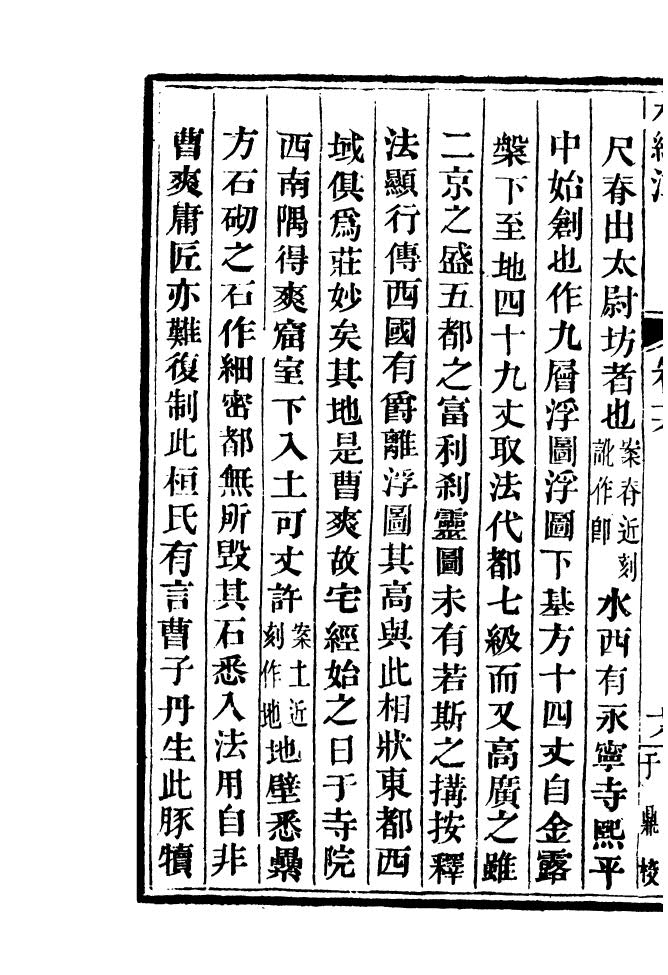 尺春出太尉坊者也案春近刻訛作卽水西有永寧寺熙平
中始創也作九層浮圖浮圖下基方十四丈自金露
槃下至地四十九丈取法代都七級而又高廣之雖
二京之盛五都之富利刹靈圖未有若斯之搆按釋
法顯行傳西國有爵離浮圖其高與此相狀東都西
域俱爲莊妙矣其地是曹爽故宅經始之日于寺院
西南隅得爽窟室下入土可丈許案土近刻作地地壁悉纍
方石砌之石作細密都無所毀其石悉入法用自非
曹爽庸匠亦難復制此桓氏有言曹子丹生此豚犢